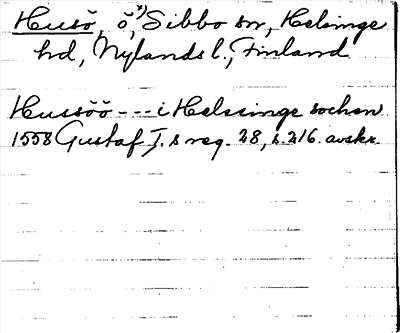 Husö, ö,*) Sibbo sn, Helsinge
hd, Nylands l., Finland
Hussöö --- i Helssinge sochen
1558 Gustaf I.s reg. 28, s. 216. avskr.